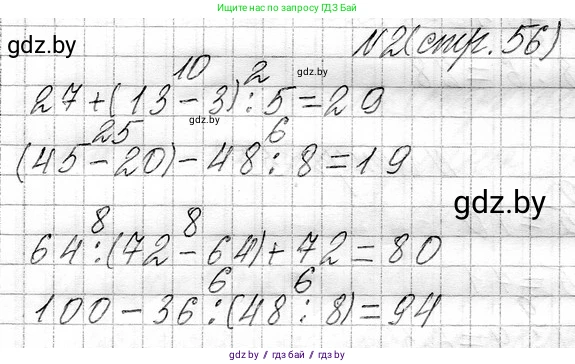 Ищите нас по запросу ГДЗ Бай
gdz.by
№2(стр. 56)
10 2
gdz.by
27+(13-3):5=29
gdz.by
25 6
(45-20)-48:8=19
gdz.by
8 8
64:(72-64)+72=80
6 6
100-36:(48:8)=94
gdz.by / гдз.бай / gdz.by